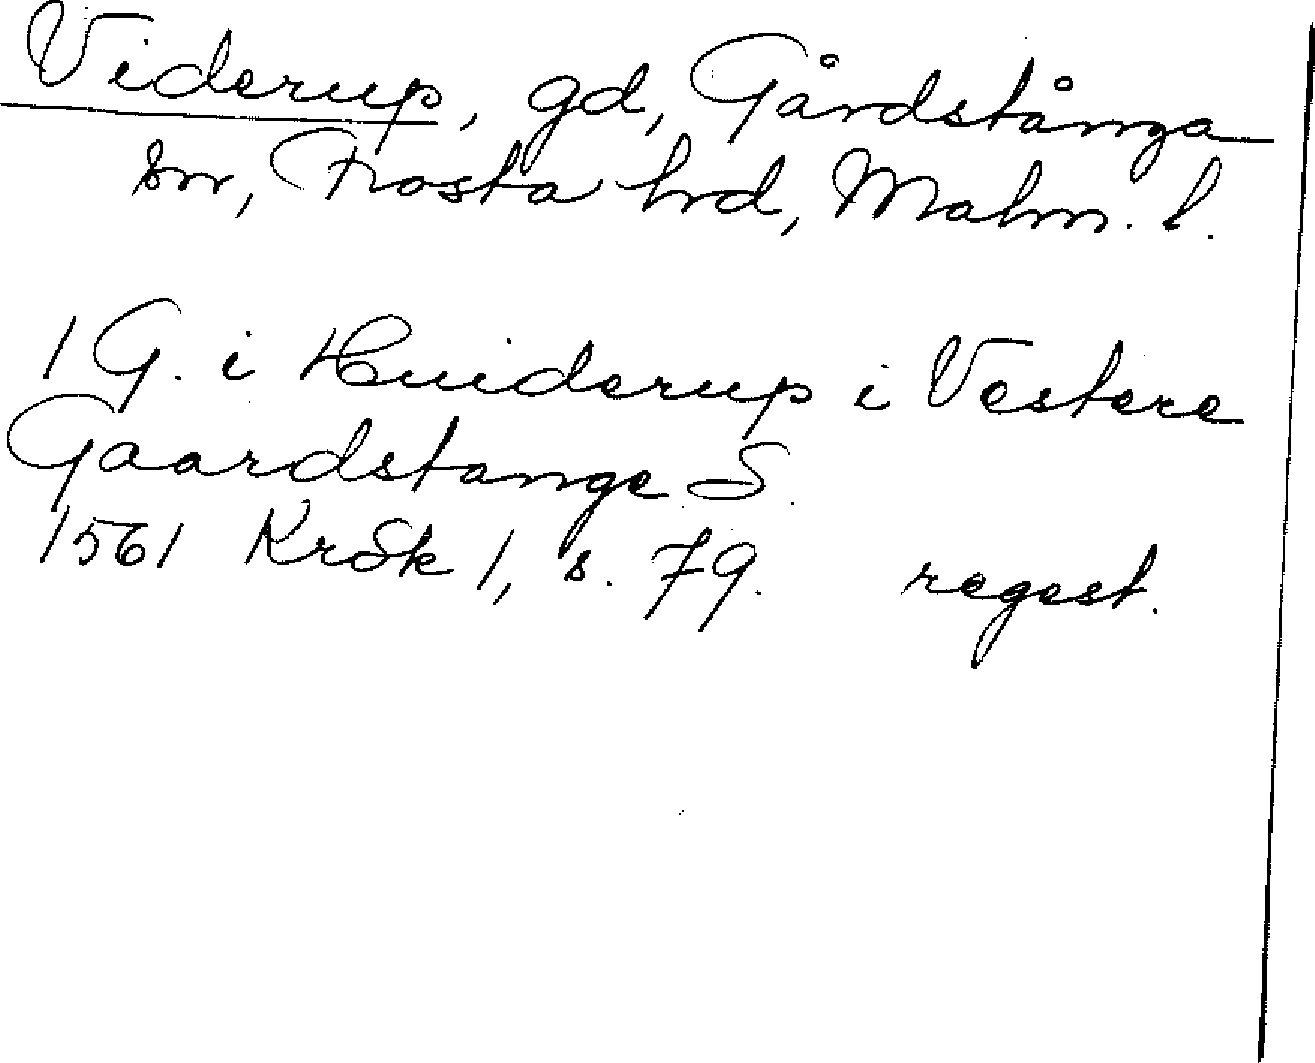 Viderup, gd, Gårdstånga
sn, Frosta hrd, Malm. l.
1 G. i Huiderup i Vestere
Gaardstange S.
1561 KrSk 1, s. 79. regest.